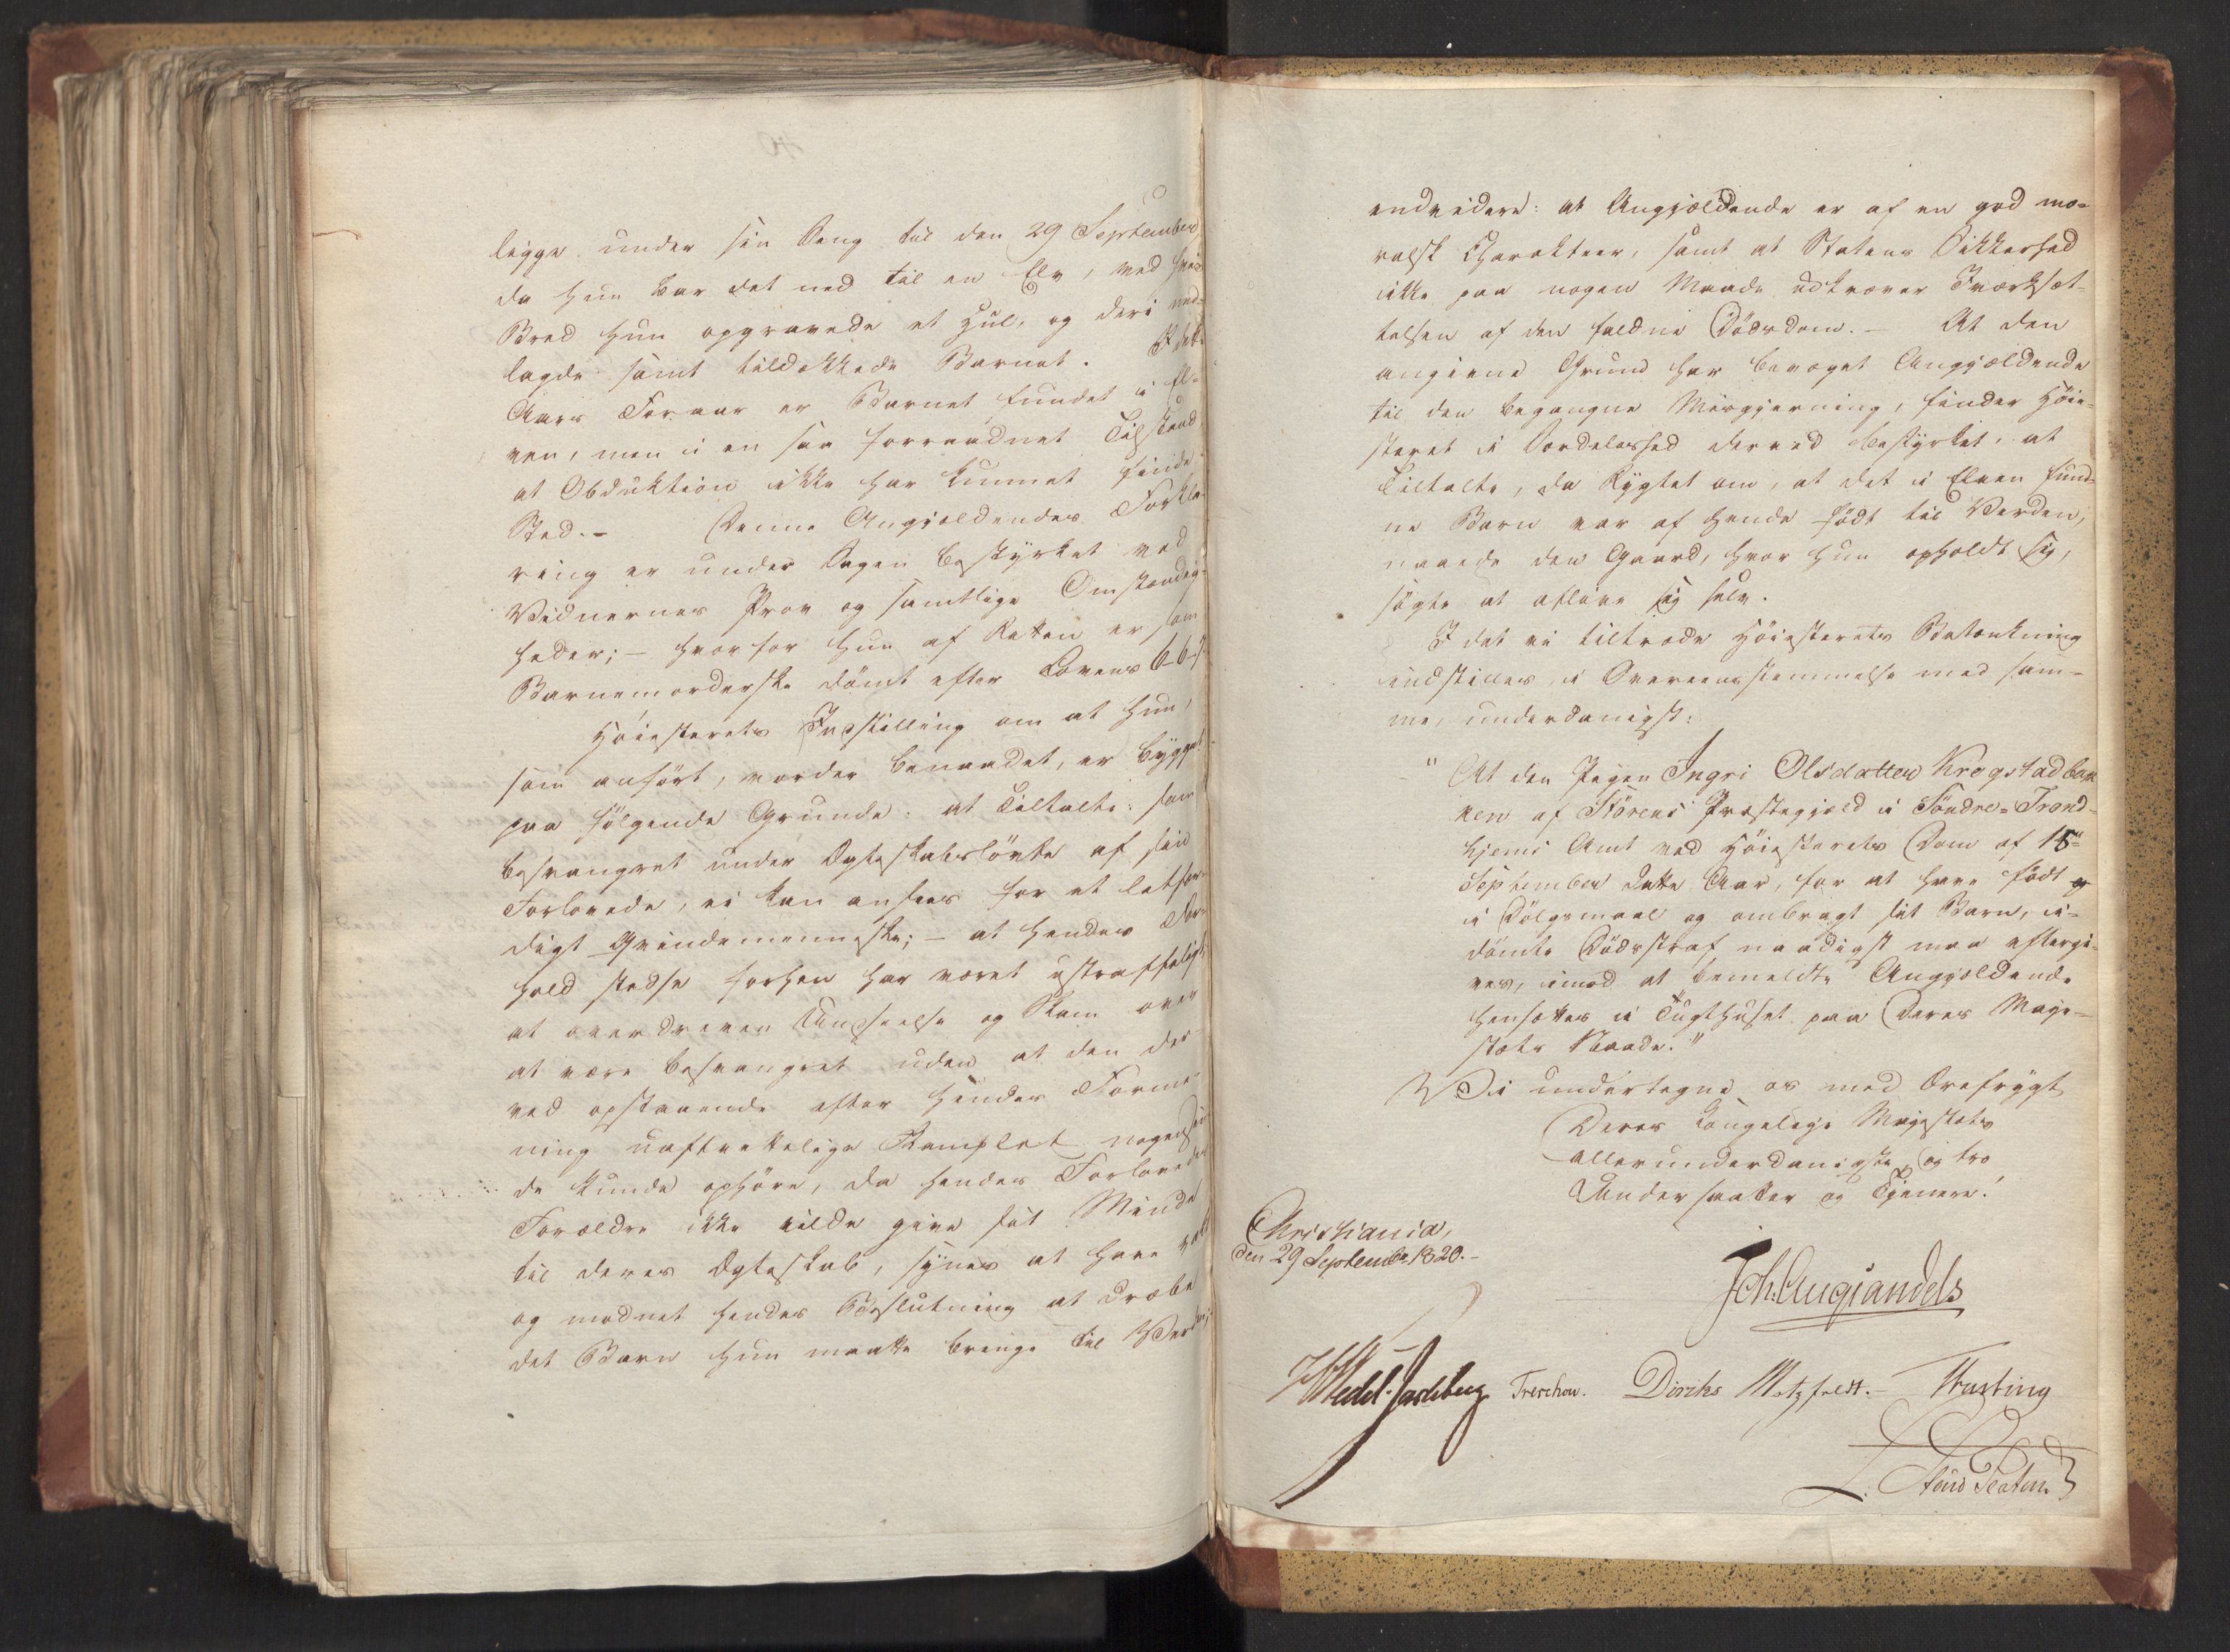 ligge under sin Seng til den 29 September
da hun bar det ned til en Elv, ved hvis
Bred hun opgravede et Hul, og deri ned-
lagde samt tildækkede Barnet. I dette
Aars Foraar er Barnet fundet i El-
ven, men i en saa forraadnet Tilstand
at Obduktion ikke har kunnet finde
Sted. – Denne Angjældendes Forkla-
ring er under Sagen bestyrket ved
Vidnernes Prov og samtlige Omstændig-
heder; – hvorfor hun af Retten er som
Barnemorderske dömt efter Lovens 6-6-7.
Höiesterets Indstilling om at hun,
som anfört, vorder benaadet, er bygget
paa fölgende Grunde: at Tiltalte som
besvangret under Ægteskabslövte af sin
Forlovede, ei kan ansees for et letfær-
digt Qvindemenneske; – at hendes For-
hold stedse forhen har været ustraffeligt;
at overdreven Undseelse og Skam over
at være besvangret uden at den der-
ved opstaaende efter hendes Forme-
ning uafsættelige Skamplet nogensin-
de kunde ophöre, da hendes Forlovedes
Forældre ikke vilde give sit Minde
til deres Ægteskab, synes at have vakt
og modnet hendes Beslutning at dræbe
det Barn hun maatte bringe til Verden;
endvidere: at Angjældende er af en god mo-
ralsk Charakteer, samt at Statens Sikkerhed
ikke paa nogen Maade udkræver Iværksæt-
telsen af den faldne Dödsdom. – At den
angivne Grund har bevæget Angjældende
til den begangne Misgjerning, finder Höie-
steret i Særdeleshed derved bestyrket, at
Tiltalte, da Rygtet om, at det i Elven fund-
ne Barn var af hende födt til Verden,
naaede den Gaard, hvor hun opholdt sig,
sögte at aflive sig selv.
I det vi tiltræde Höiesterets Betænkning
indstilles i Overeensstemmelse med sam-
me, underdanigst:
"At den Pigen Ingri Olsdatter Krogstadbak
ken af Störens Præstegjeld i Söndre-Trond-
hjems Amt ved Höiesterets Dom af 15de
September dette Aar, for at have födt
i Dölgsmaal og ombragt sit Barn, i-
dömte Dödsstraf naadigst maa eftergi-
ves, imod at bemeldte Angjældende
hensættes i Tugthuset paa Deres Maje-
stæts Naade."
Vi undertegne os med Ærefrygt
Deres Kongelige Majestæts
allerunderdanigste og tro
Undersaatter og Tjenere!
Christiania,
den 29 September 1820. –
Joh. Aug Sandels
HWedel-Jarlsberg Treschow. Diriks Motzfeldt. Fasting